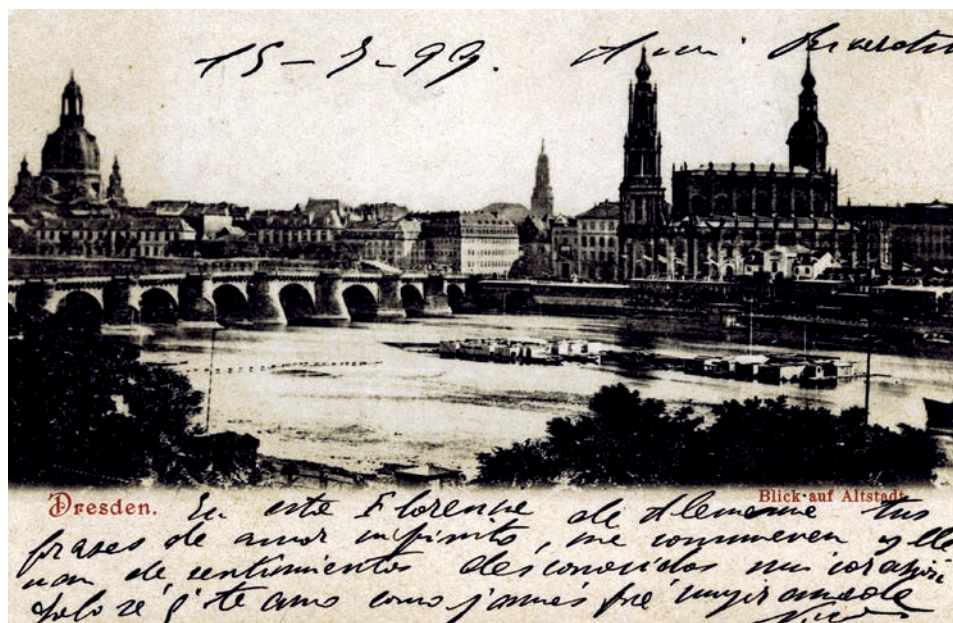 15-7-99.
Dresden.
Blick auf Altstadt.
En este Florence de Alemanne tus
frases de amor infinito, me conmueven y lle
nan de sentimientos desconocidos mi corazón
Solo sé q' te amo como jamás fué mujer amada